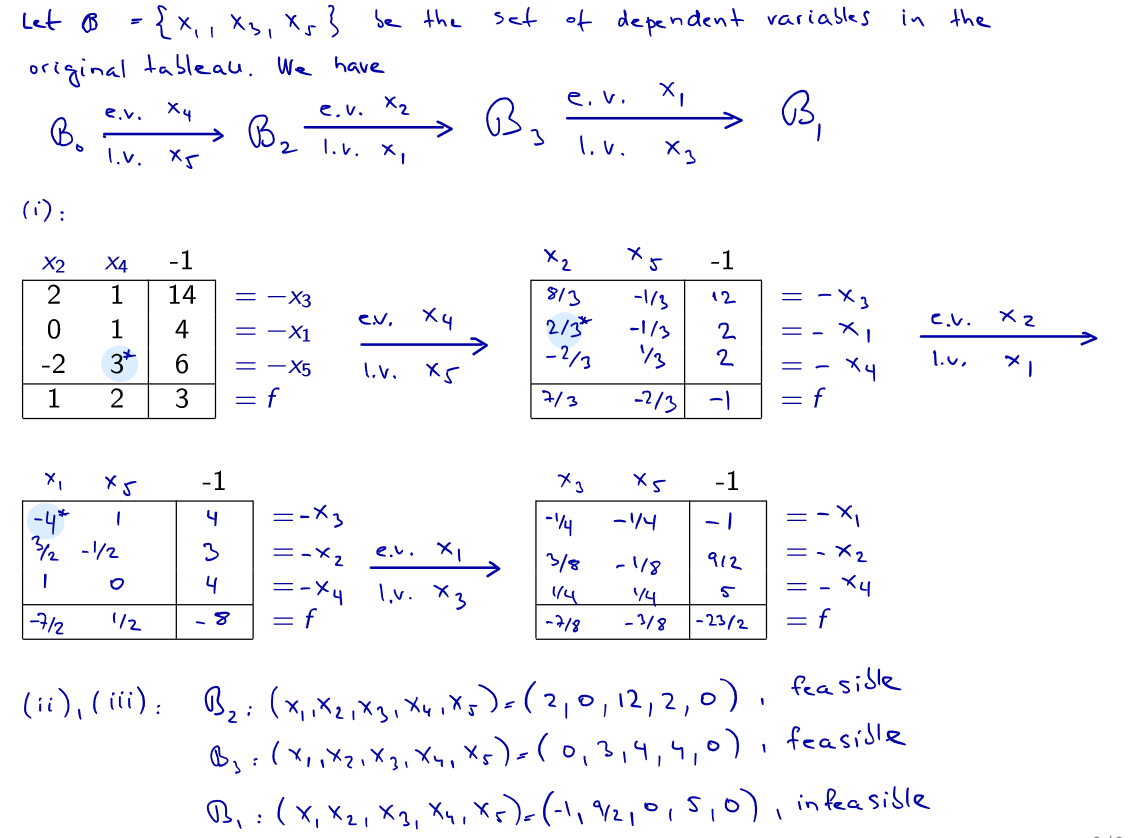 Let B = {x1, x3, x5} be the set of dependent variables in the
original tableau. We have
B0 e.v. x4 / l.v. x5 → B2 e.v. x2 / l.v. x1 → B3 e.v. x1 / l.v. x3 → B1
(i):
x2 x4 -1
2 1 14 = -x3
0 1 4 = -x1
-2 3* 6 = -x5
1 2 3 = f
e.v. x4
l.v. x5
x2 x5 -1
8/3 -1/3 12 = -x3
2/3* -1/3 2 = -x1
-2/3 1/3 2 = -x4
7/3 -2/3 -1 = f
e.v. x2
l.v. x1
x1 x5 -1
-4* 1 4 = -x3
3/2 -1/2 3 = -x2
1 0 4 = -x4
-7/2 1/2 -8 = f
e.v. x1
l.v. x3
x3 x5 -1
-1/4 -1/4 -1 = -x1
3/8 -1/8 9/2 = -x2
1/4 1/4 5 = -x4
-7/8 -3/8 -23/2 = f
(ii), (iii): B2: (x1, x2, x3, x4, x5) = (2, 0, 12, 2, 0), feasible
B3: (x1, x2, x3, x4, x5) = (0, 3, 4, 4, 0), feasible
B1: (x1 x2, x3, x4, x5) = (-1, 9/2, 0, 5, 0), infeasible